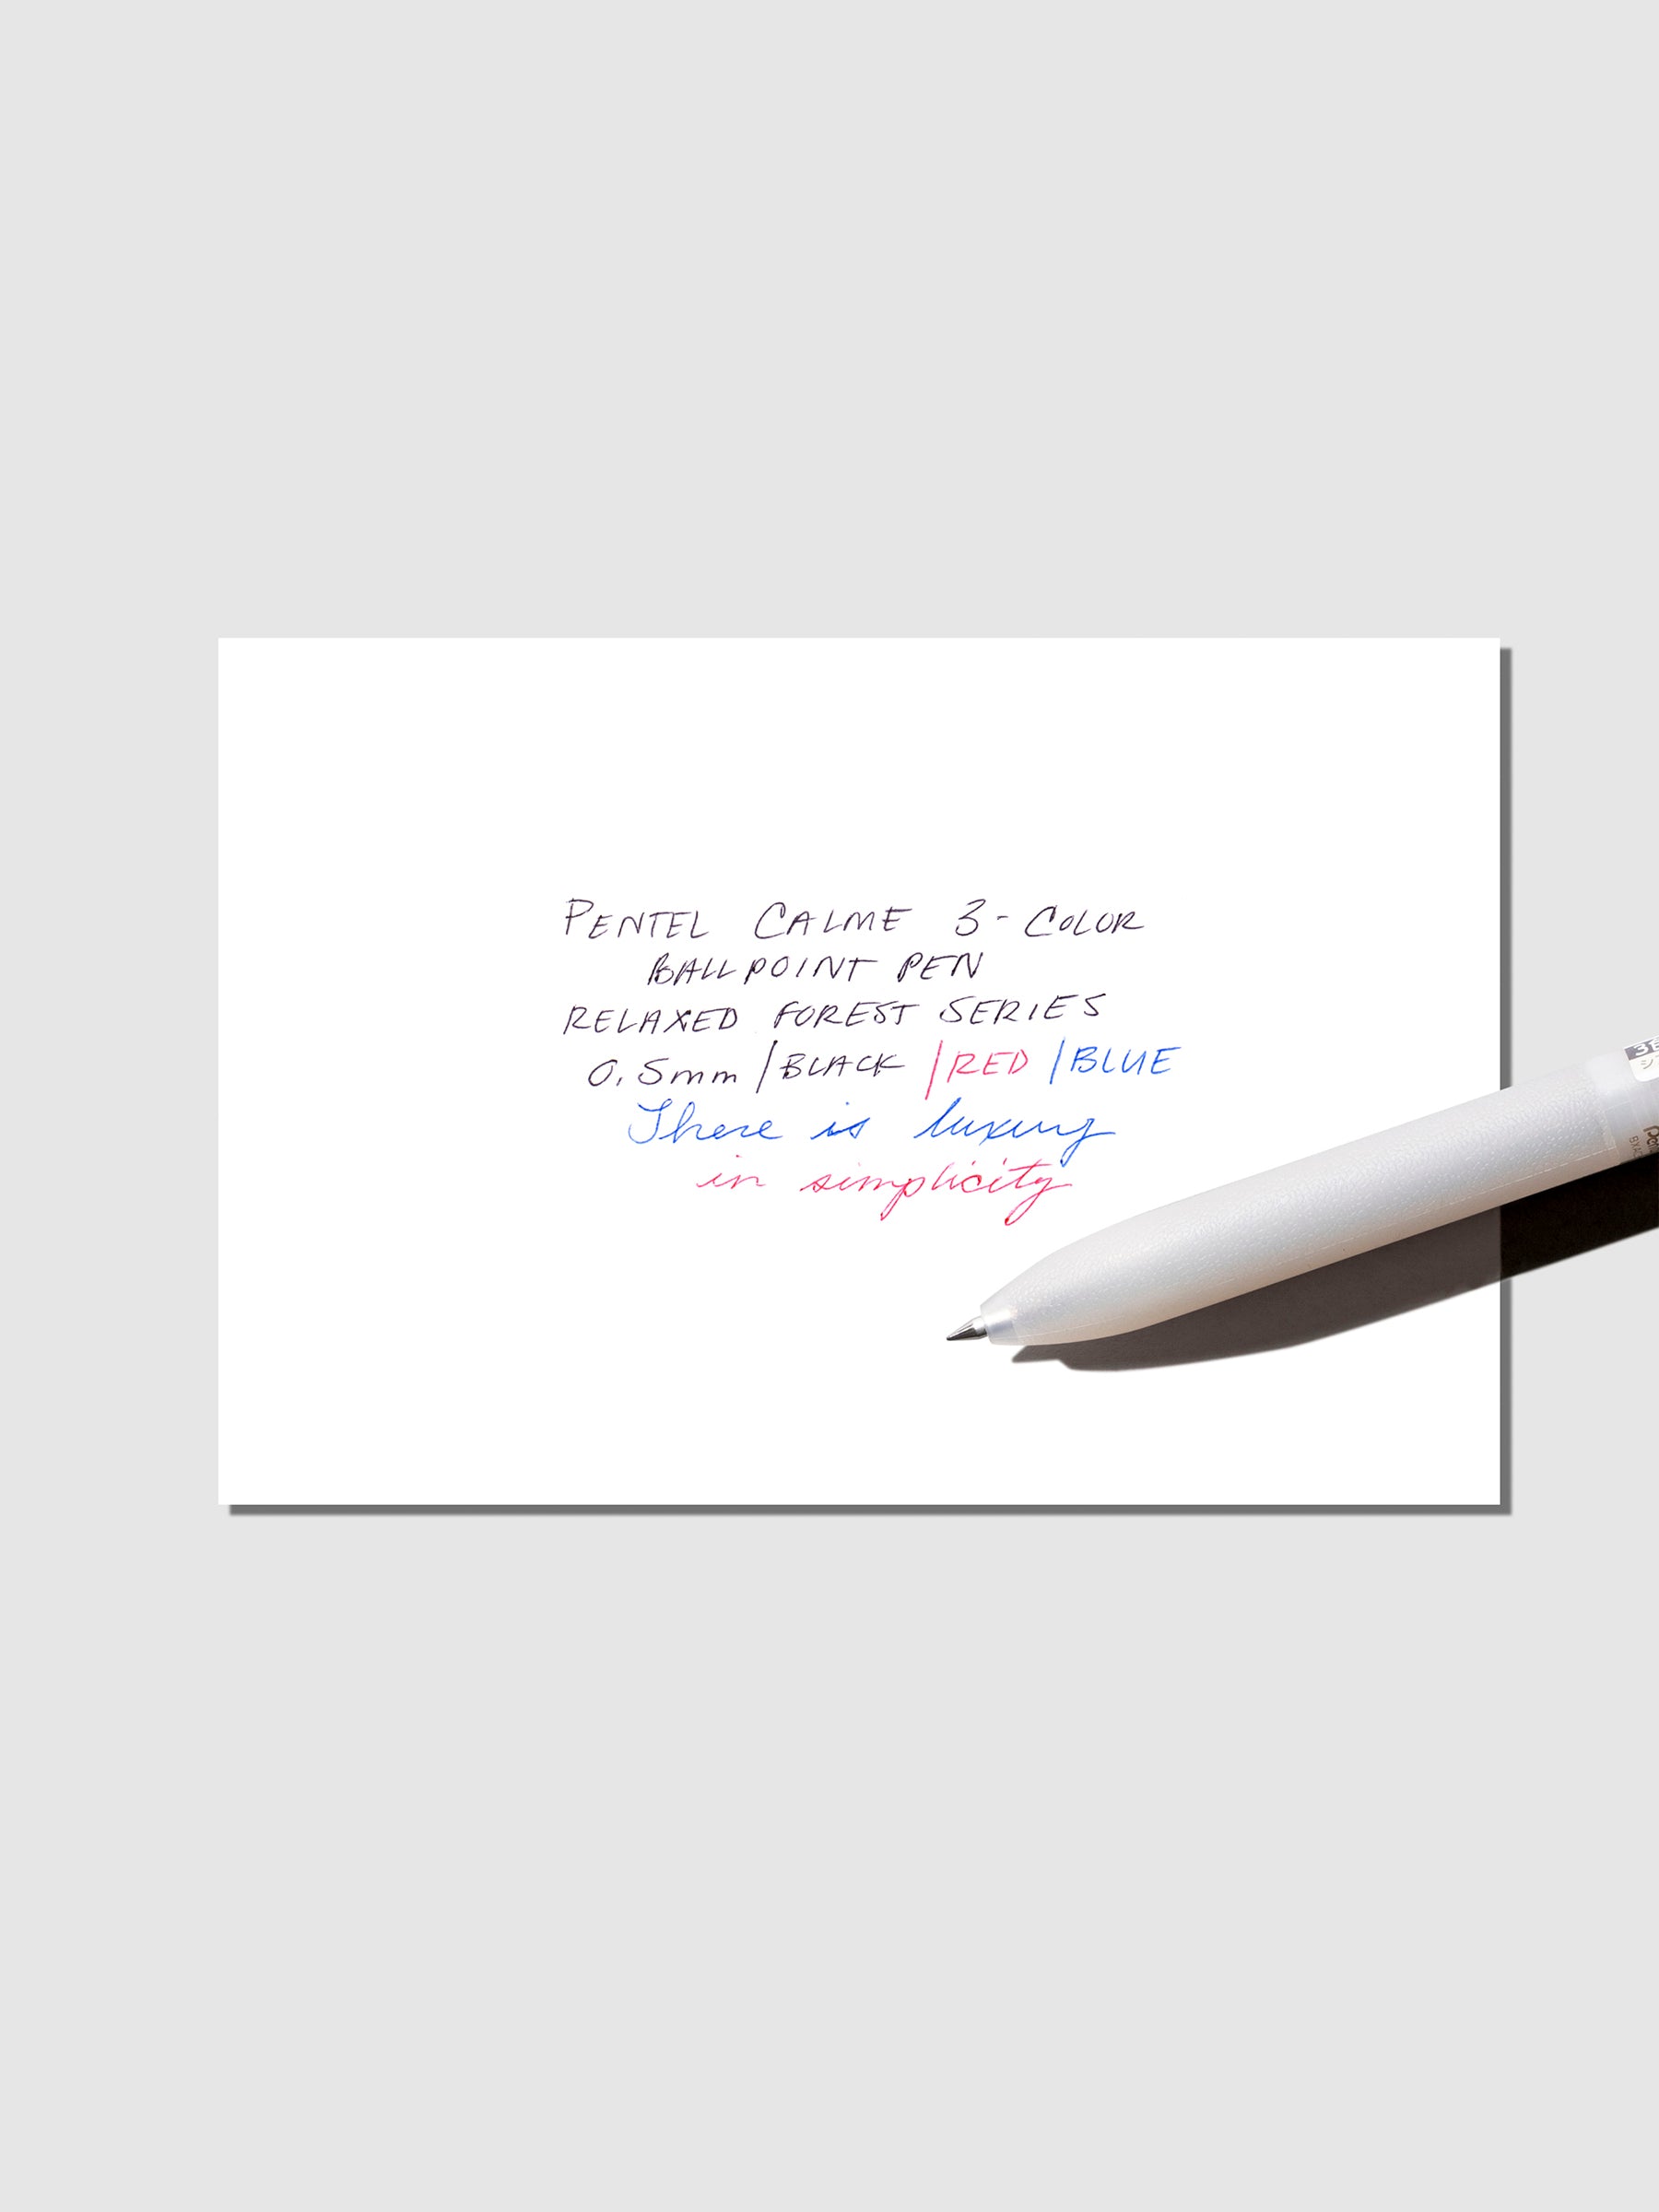 PENTEL CALME 3-COLOR
BALLPOINT PEN
RELAXED FOREST SERIES
0.5mm /BLACK /RED /BLUE
There is luxury
in simplicity